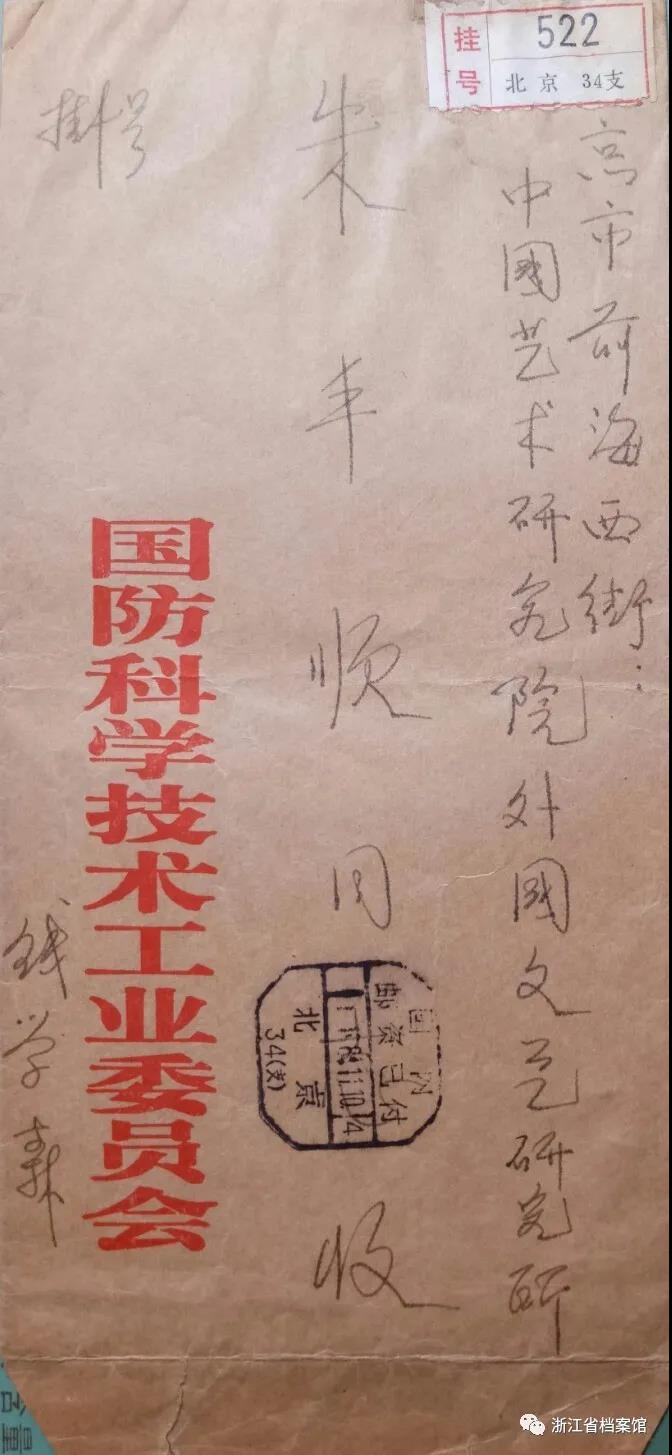 挂号
522
北京 34支
市前海西街：
中國艺术研究院外國文艺研究所
朱丰顺同 收
掛号
国内
邮资已付
北京
34(支)
国防科学技术工业委员会
钱学森
浙江省档案馆